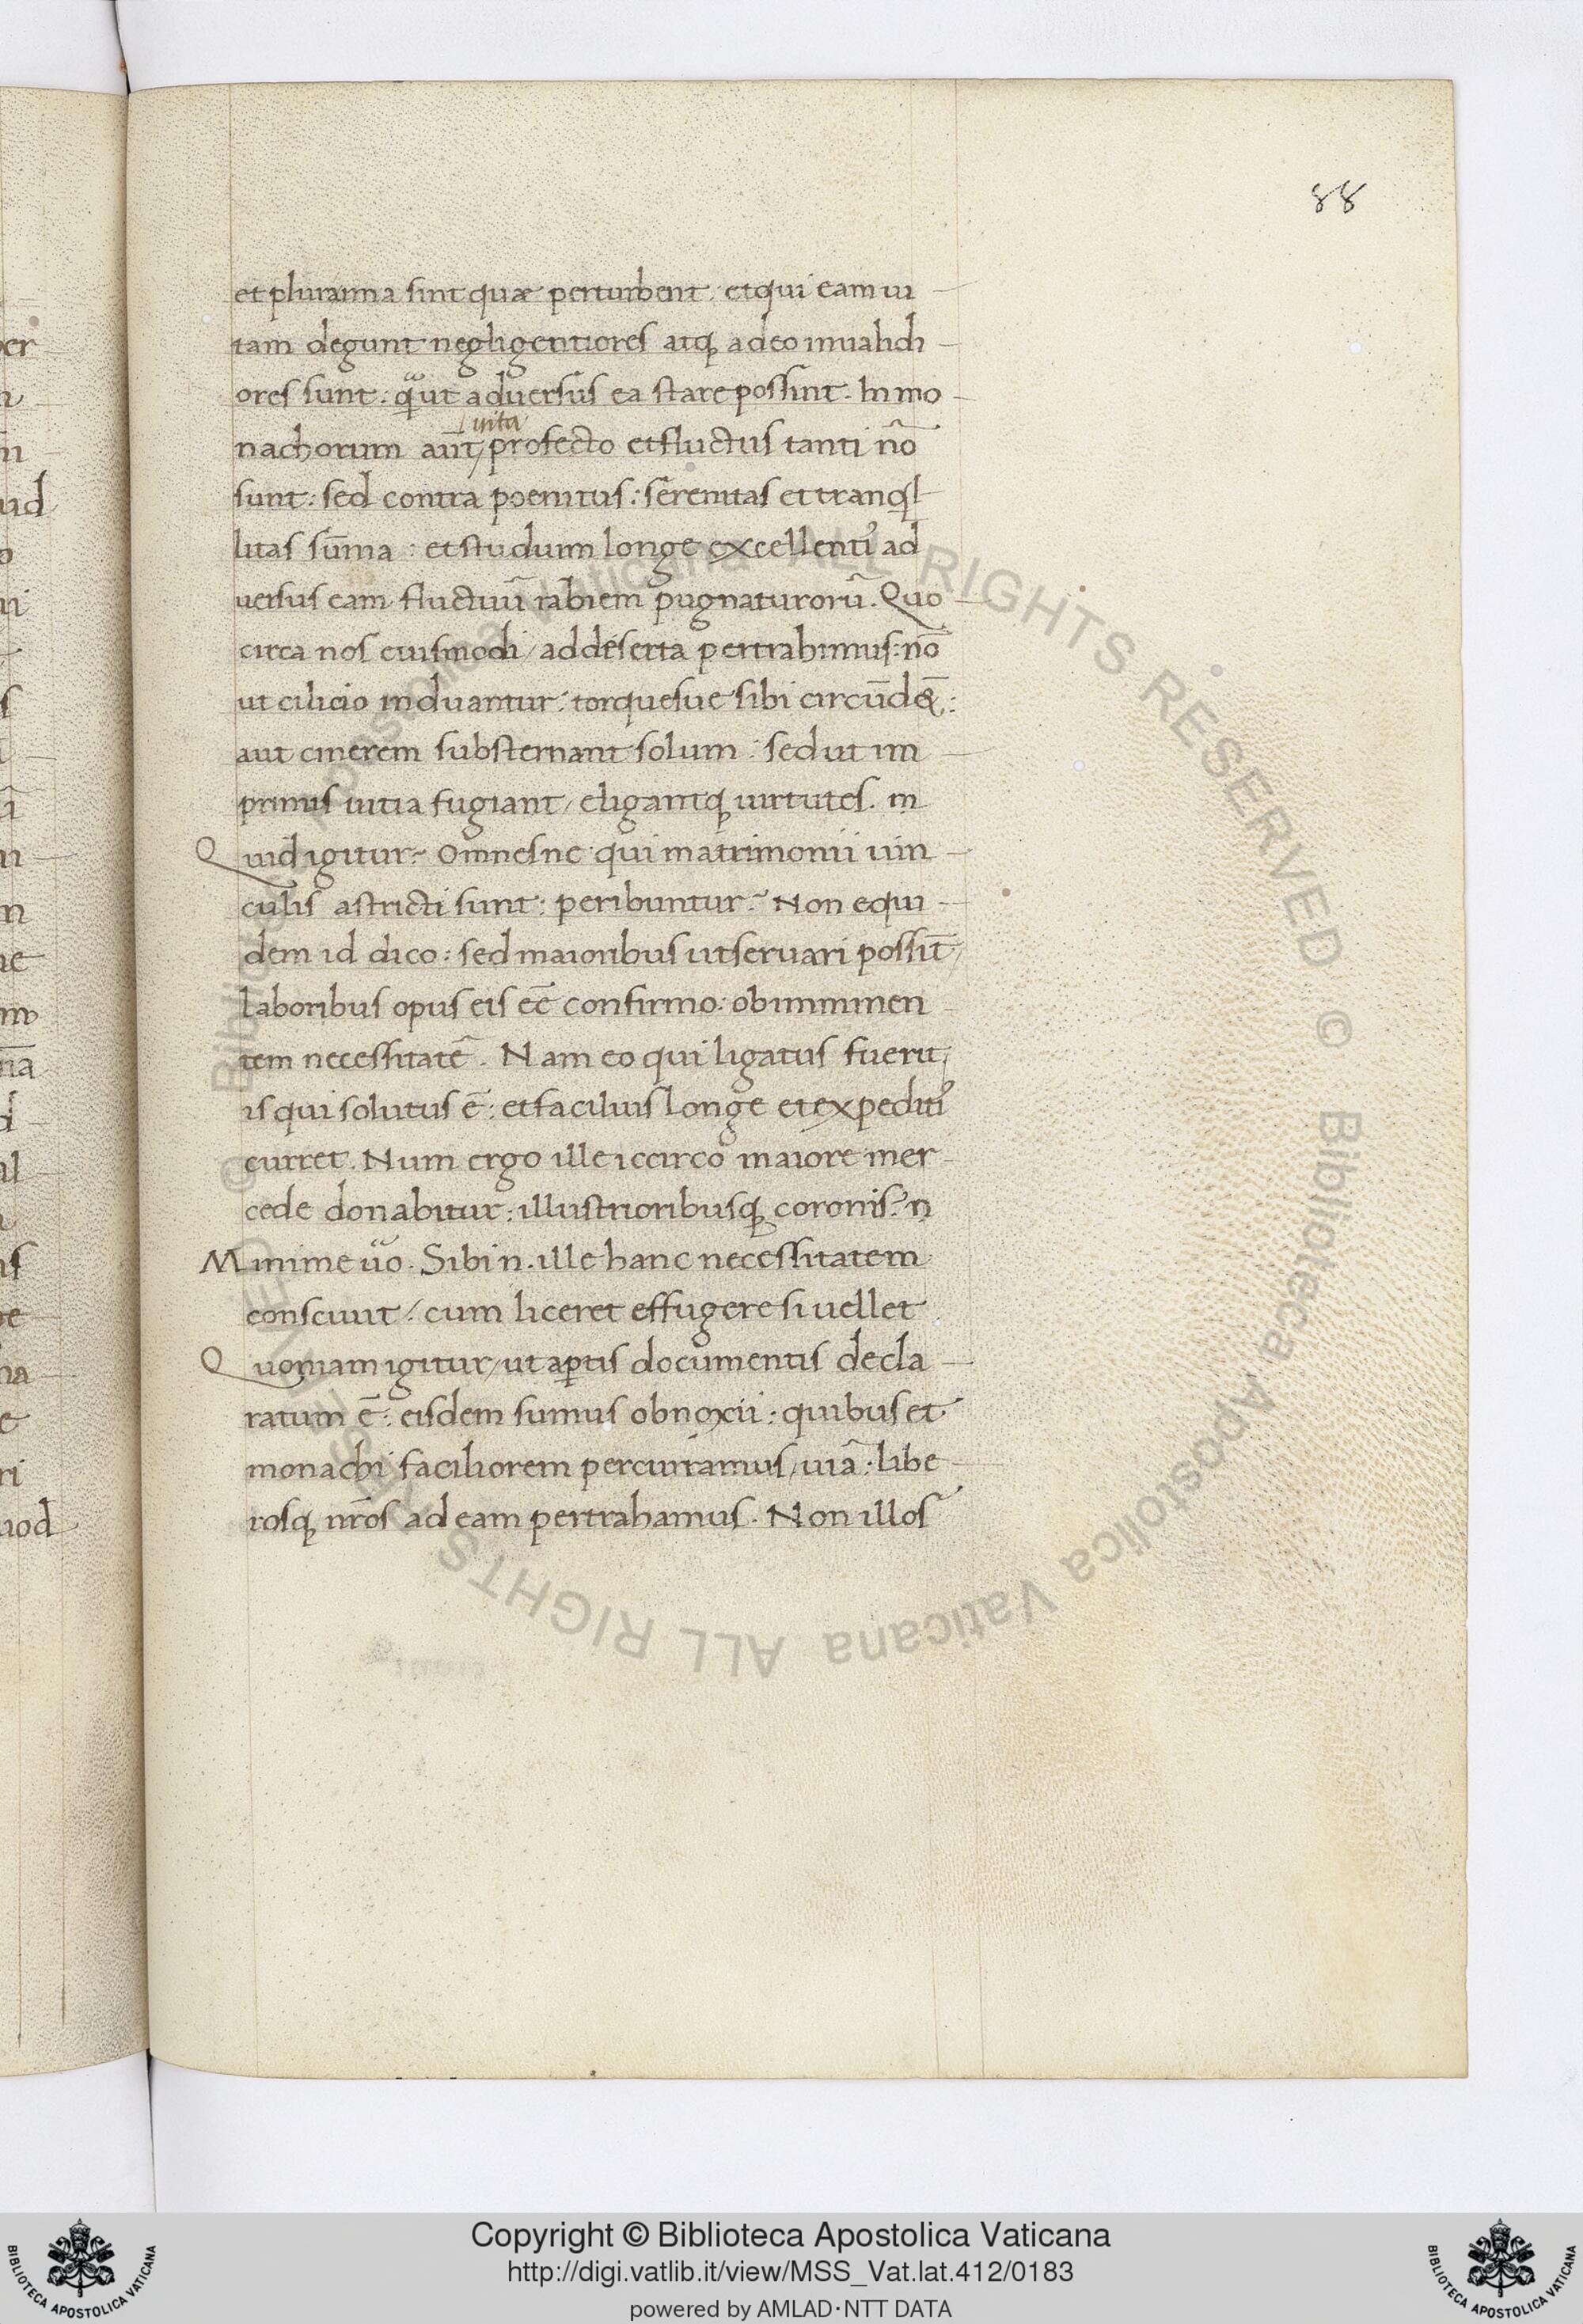 88
et plurima sint quae perturbent: et qui eam ui
tam degunt negligentiores atq; adeo inualidi
ores sunt: q̃ ut aduersus ea stare possint. In mo
uita
nachorum aut̃/ profecto et fluctus tanti nõ
sunt: sed contra poenitus: serenitas et tranq̃l
litas sũma: et studium longe excellenti᾽ ad
uersus eam fluctuũ rabiem pugnaturorũ. Quo
circa nos eiusmodi/ ad deserta pertrahimus: nõ
ut cilicio induantur: torquesue sibi circũdẽt:
aut cinerem substernant solum: sed ut im
primis uitia fugiant/ eligantq; uirtutes.
Quid igitur? Omnesne qui matrimonii uin
culis astricti sunt: peribuntur? Non equi
dem id dico: sed maioribus ut seruari possĩt/
laboribus opus eis eẽ confirmo: ob imminen
tem necessitatẽ. Nam eo qui ligatus fuerit,
is qui solutus ẽ: et facilius longe et expediti᾽
curret. Num ergo ille iccirco maiore mer
cede donabitur: illustrioribusq; coronis?
Minime ũo. Sibi n. ille hanc necessitatem
consciuit/ cum liceret effugere si uellet
Quoniam igitur/ ut aptis documentis decla
ratum ẽ: eisdem sumus obnoxii: quibus et
monachi faciliorem percurramus/ uiã: libe
rosq; nr̃os ad eam pertrahamus. Non illos
ALL RIGHTS RESERVED © Biblioteca Apostolica Vaticana ALL RIGHTS RESERVED © Biblioteca Apostolica Vaticana
Copyright © Biblioteca Apostolica Vaticana
http://digi.vatlib.it/view/MSS_Vat.lat.412/0183
powered by AMLAD·NTT DATA
BIBLIOTECA APOSTOLICA VATICANA
BIBLIOTECA APOSTOLICA VATICANA